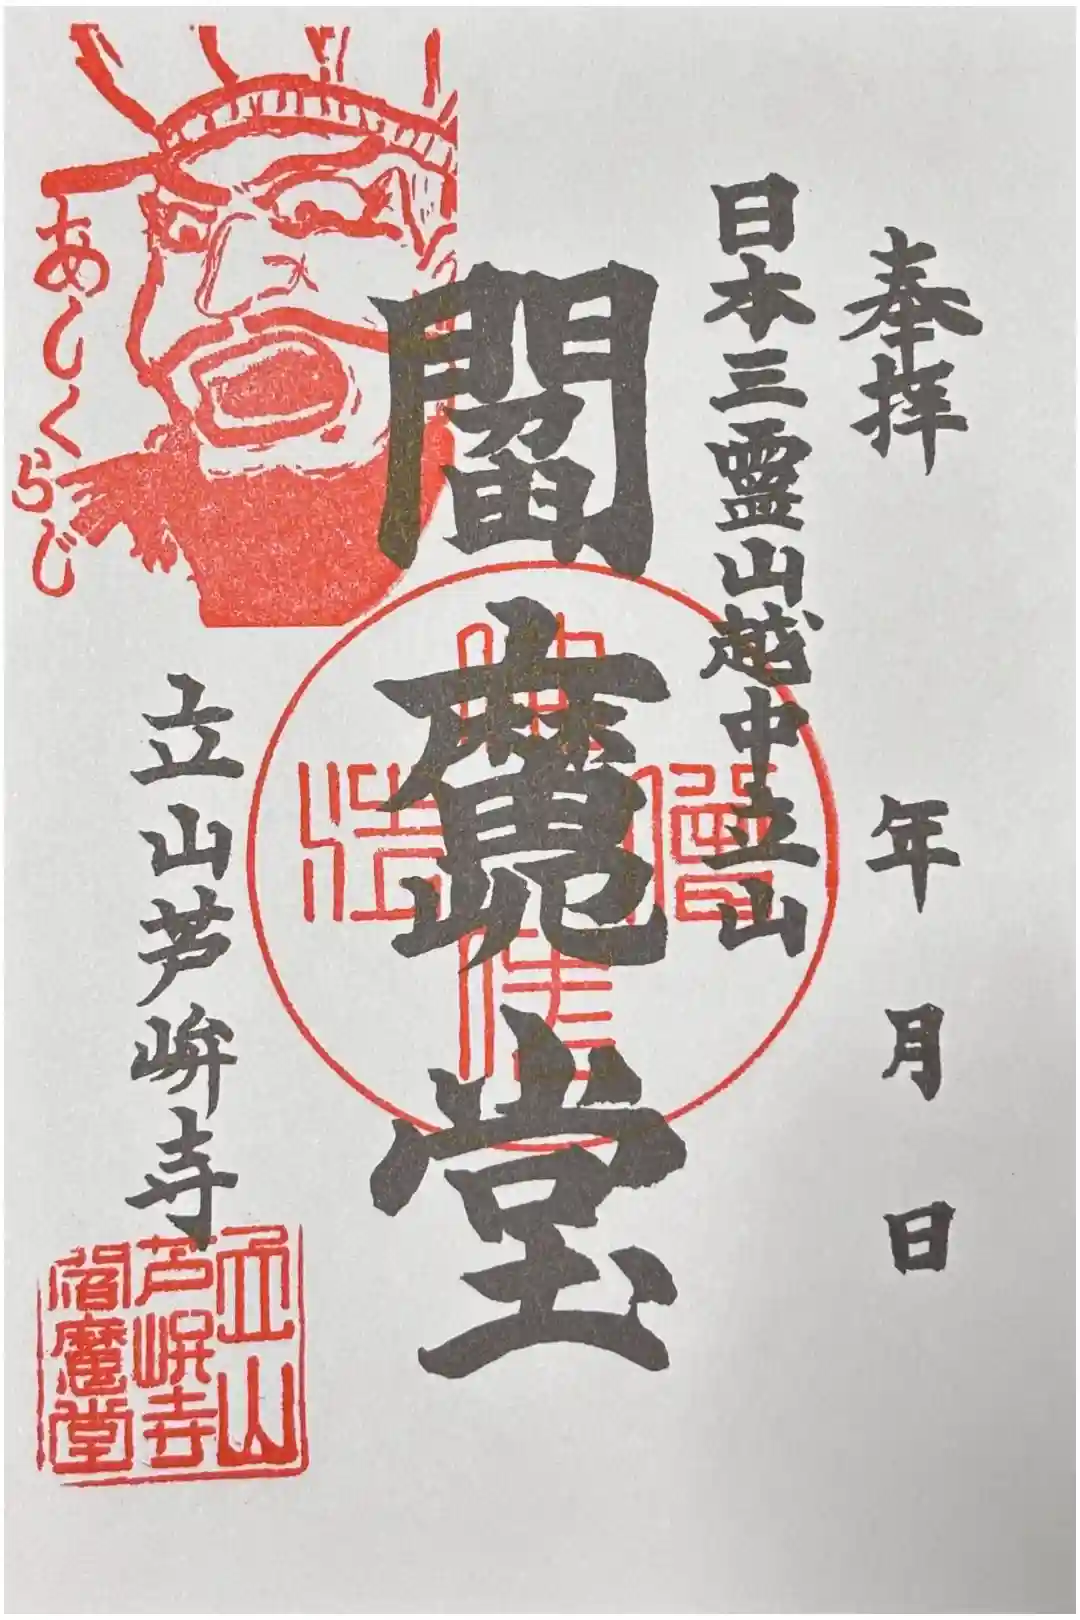 奉拝 年 月 日
日本三霊山越中立山
閻魔堂
立山芦峅寺
あしくらじ
佛法僧
立山
芦峅寺
閻魔堂